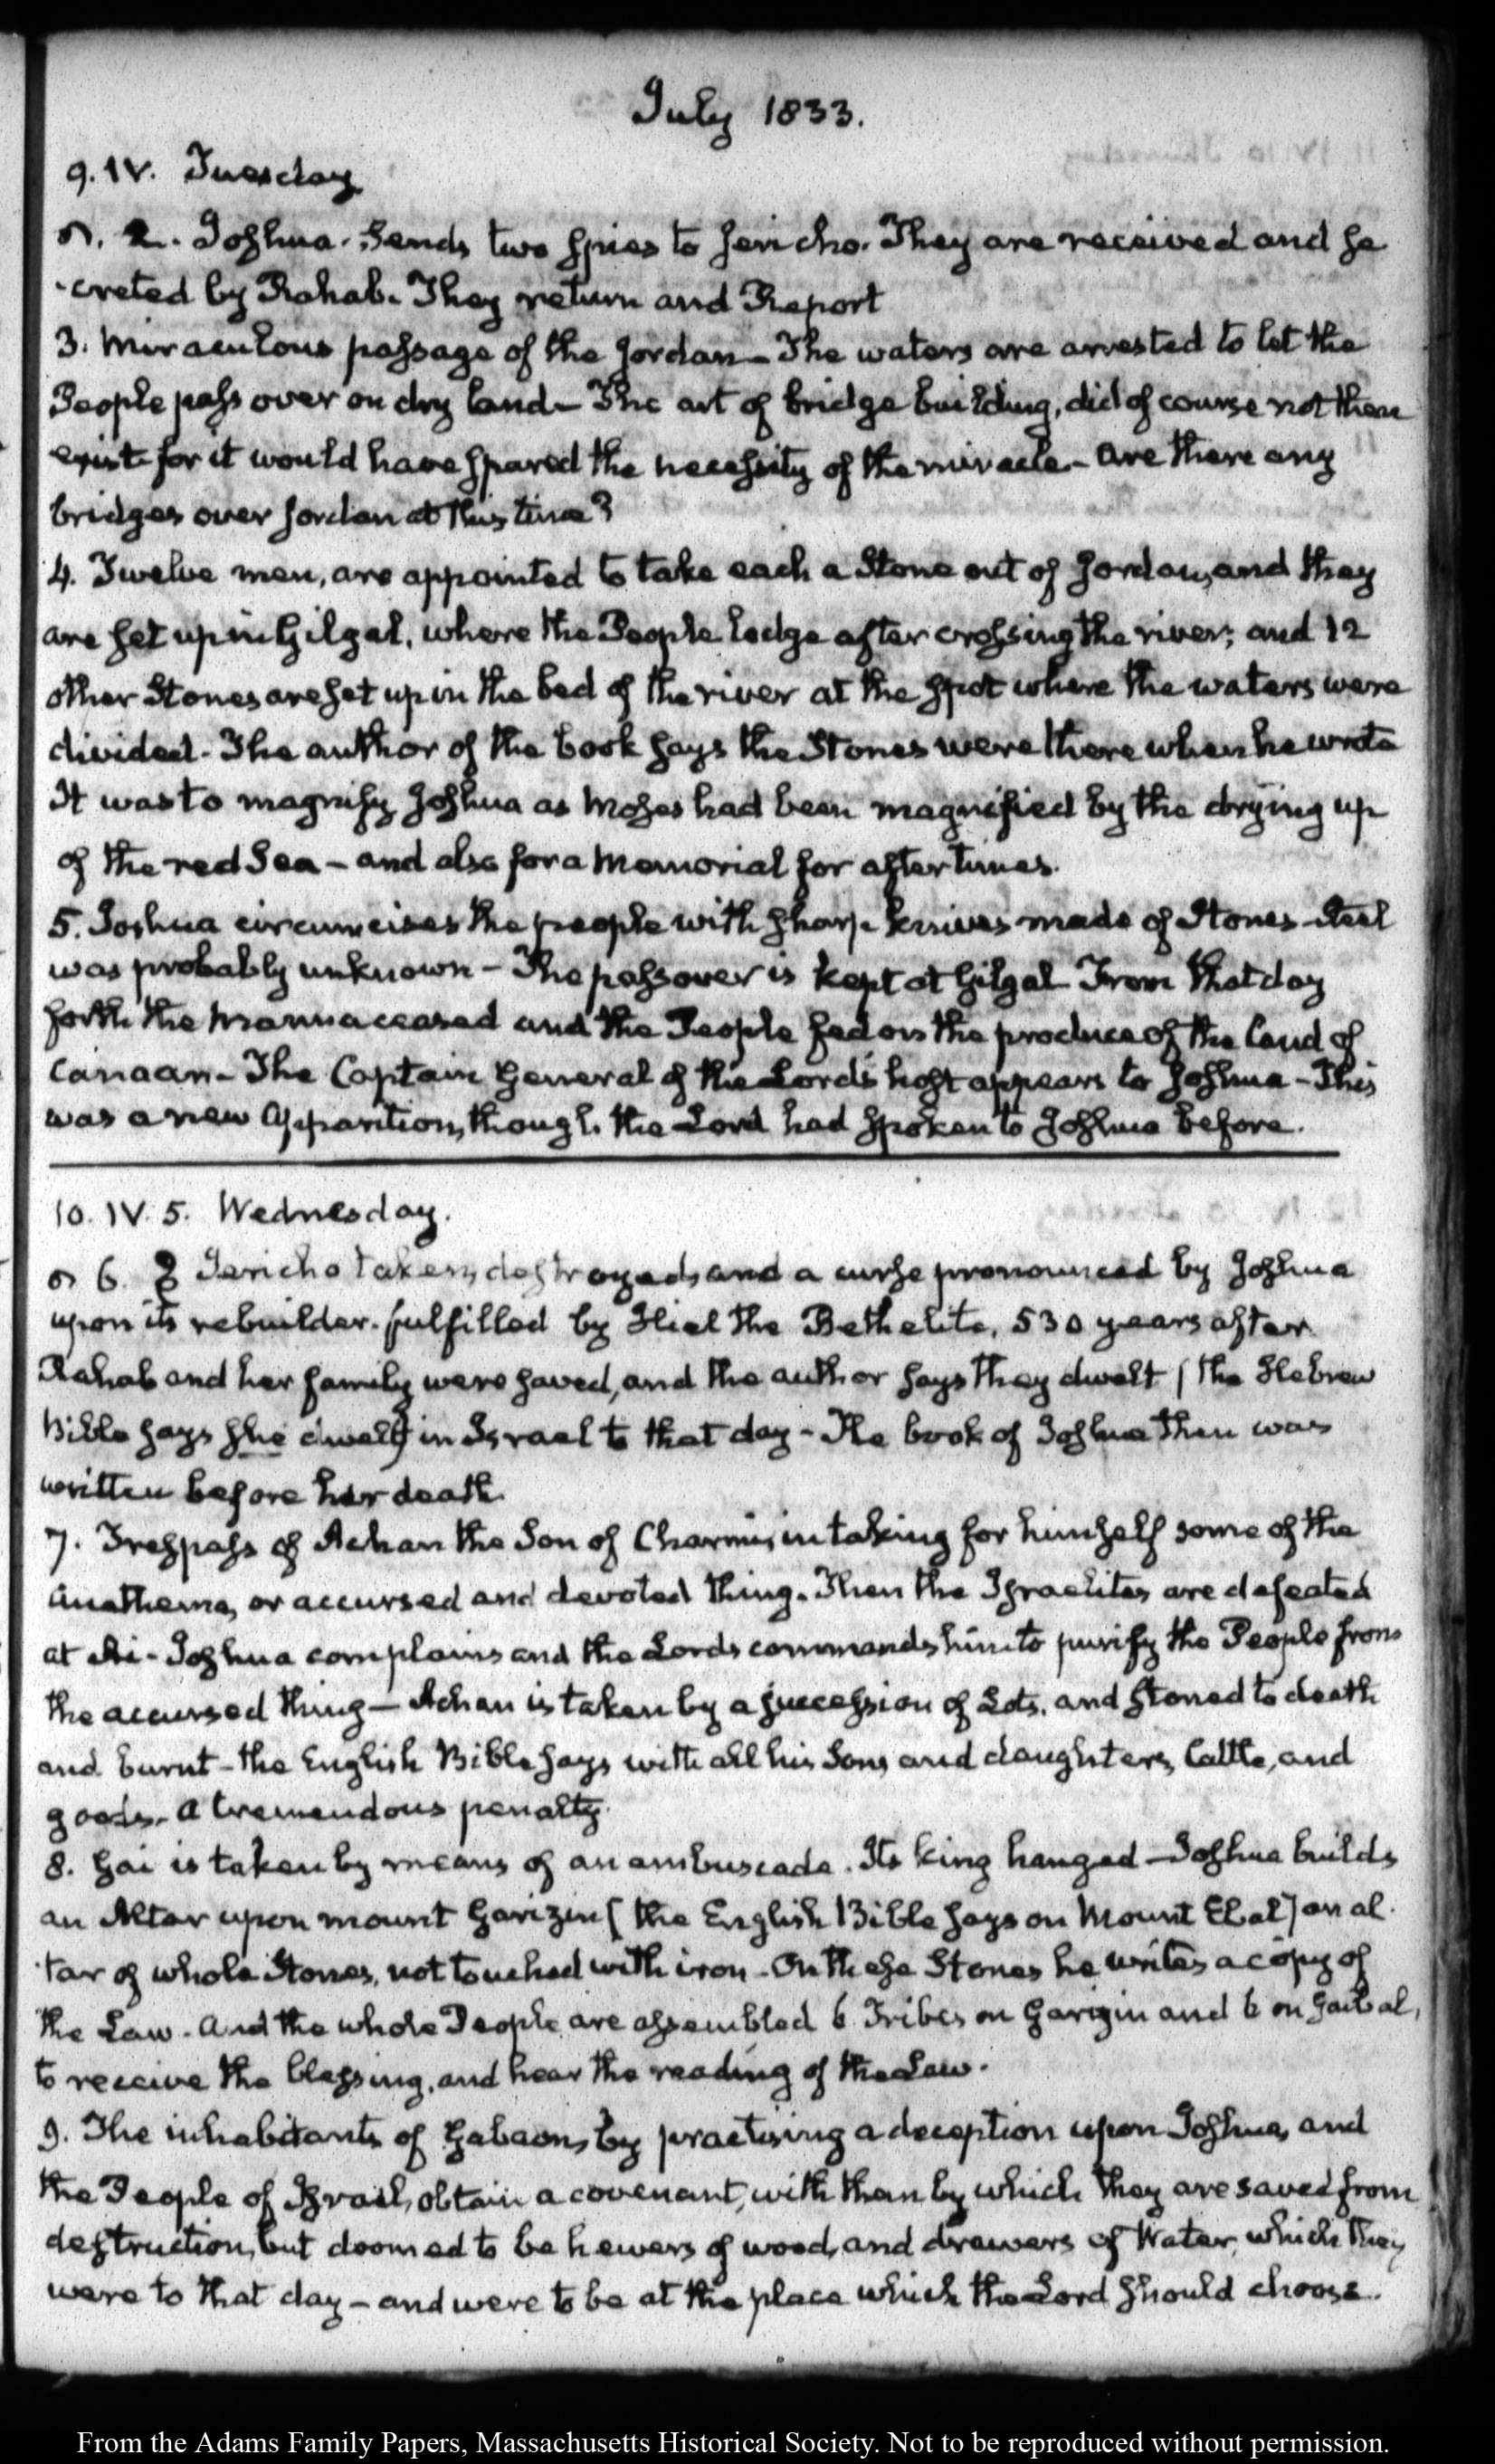 July 1833.
9. IV. Tuesday
2. Joshua. Sends two spies to Jericho. They are received and se
-creted by Rahab. They return and Report
3. Miraculous passage of the Jordan — The waters are arrested to let the
People pass over on dry land — The art of bridge building, did of course not then
exist for it would have spared the necessity of the miracle — Are there any
bridges over Jordan at this time?
4. Twelve men, are appointed to take each a Stone out of Jordan, and they
are set up in Gilgal, where the People lodge after crossing the river; and 12
other Stones are set up in the bed of the river at the spot where the waters were
divided. The author of the book says the Stones were there when he wrote
It was to magnify Joshua as Moses had been magnified by the drying up
of the red Sea — and also for a Memorial for after times.
5. Joshua circumcises the people with sharp knives made of Stones — Steel
was probably unknown — The passover is kept at Gilgal — From that day
forth the Manna ceased and the People fed on the produce of the land of
Canaan — The Captain General of the Lord's host appears to Joshua — This
was a new Apparition, though the Lord had spoken to Joshua before.
10. IV. 5. Wednesday.
6. Jericho taken, destroyed, and a curse pronounced by Joshua
upon its rebuilder. fulfilled by Hiel the Bethelite, 530 years after
Rahab and her family were saved, and the author says they dwelt (the Hebrew
Bible says she dwelt) in Israel to that day — The book of Joshua then was
written before her death.
7. Trespass of Achan the Son of Charmi, in taking for himself some of the
anathema, or accursed and devoted thing. Then the Israelites are defeated
at Ai — Joshua complains and the Lord commands him to purify the People from
the accursed thing — Achan is taken by a succession of Lots, and stoned to death
and burnt — the English Bible says with all his Sons and daughters, Cattle, and
goods — A tremendous penalty.
8. Gai is taken by means of an ambuscade. Its king hanged — Joshua builds
an Altar upon mount Garizin [the English Bible says on Mount Ebal] an al-
-tar of whole Stones, not touched with iron — On these Stones he writes a copy of
the Law. And the whole People are assembled 6 Tribes on Garizin and 6 on Gaibal,
to receive the blessing, and hear the reading of the Law.
9. The inhabitants of Gabaon, by practising a deception upon Joshua, and
the People of Israel, obtain a covenant, with them by which they are saved from
destruction, but doomed to be hewers of wood, and drawers of Water, which they
were to that day — and were to be at the place which the Lord should choose.
From the Adams Family Papers, Massachusetts Historical Society. Not to be reproduced without permission.